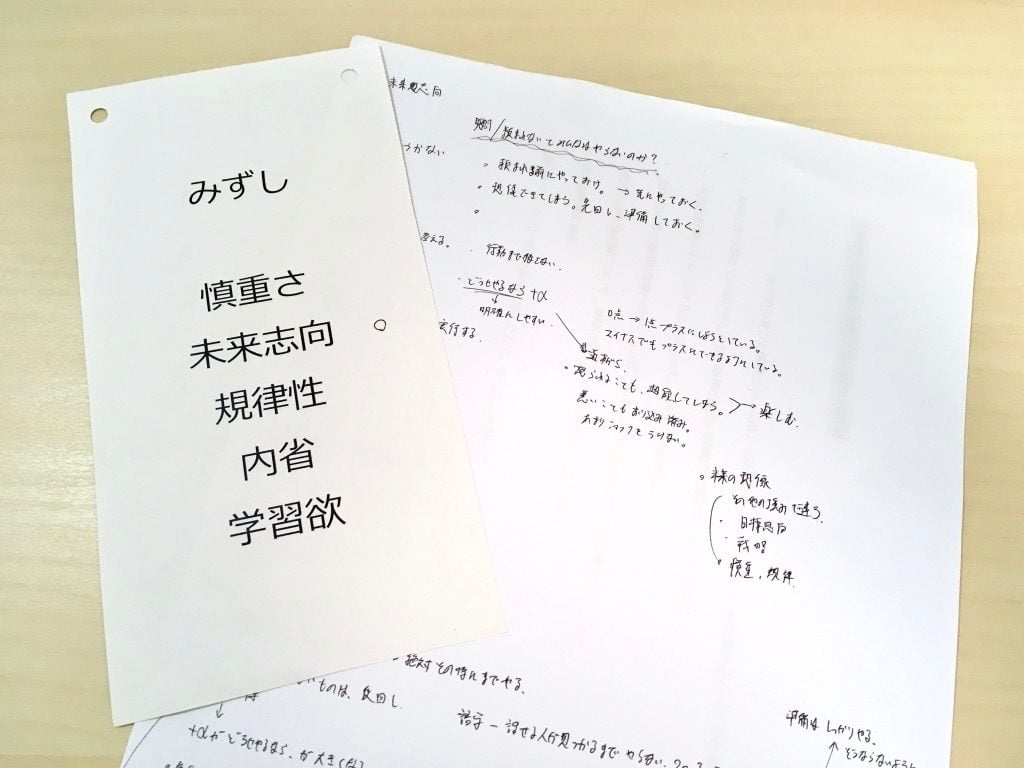 みずし
慎重さ
未来志向
規律性
内省
学習欲
未来志向
つかない
疑問/頼まれないとみんなはやらないのか？
頼まれる前にやっておけ。→先にやっておく。
想像できてしまう。先回し、準備しておく。
考える。
行動まで移さない。
どうせやるなら +α
明確にしやすい
実行する。
0点→1点プラスにしようとしている。
マイナスでもプラスにできるようにしている。
怒られることも、想定してしまう。
楽しむ
悪いことも折り込み済み。
あまりショックをうけない。
未来の想像
その他の強みで違う。
目標志向
戦略
慎重、規律
絶対その時にまでやる。
ものは、先回し、
+αがどうせやるなら、が大きくなる
話せる人が見つかるまでやらない。
準備はしっかりやる、
そうならないように